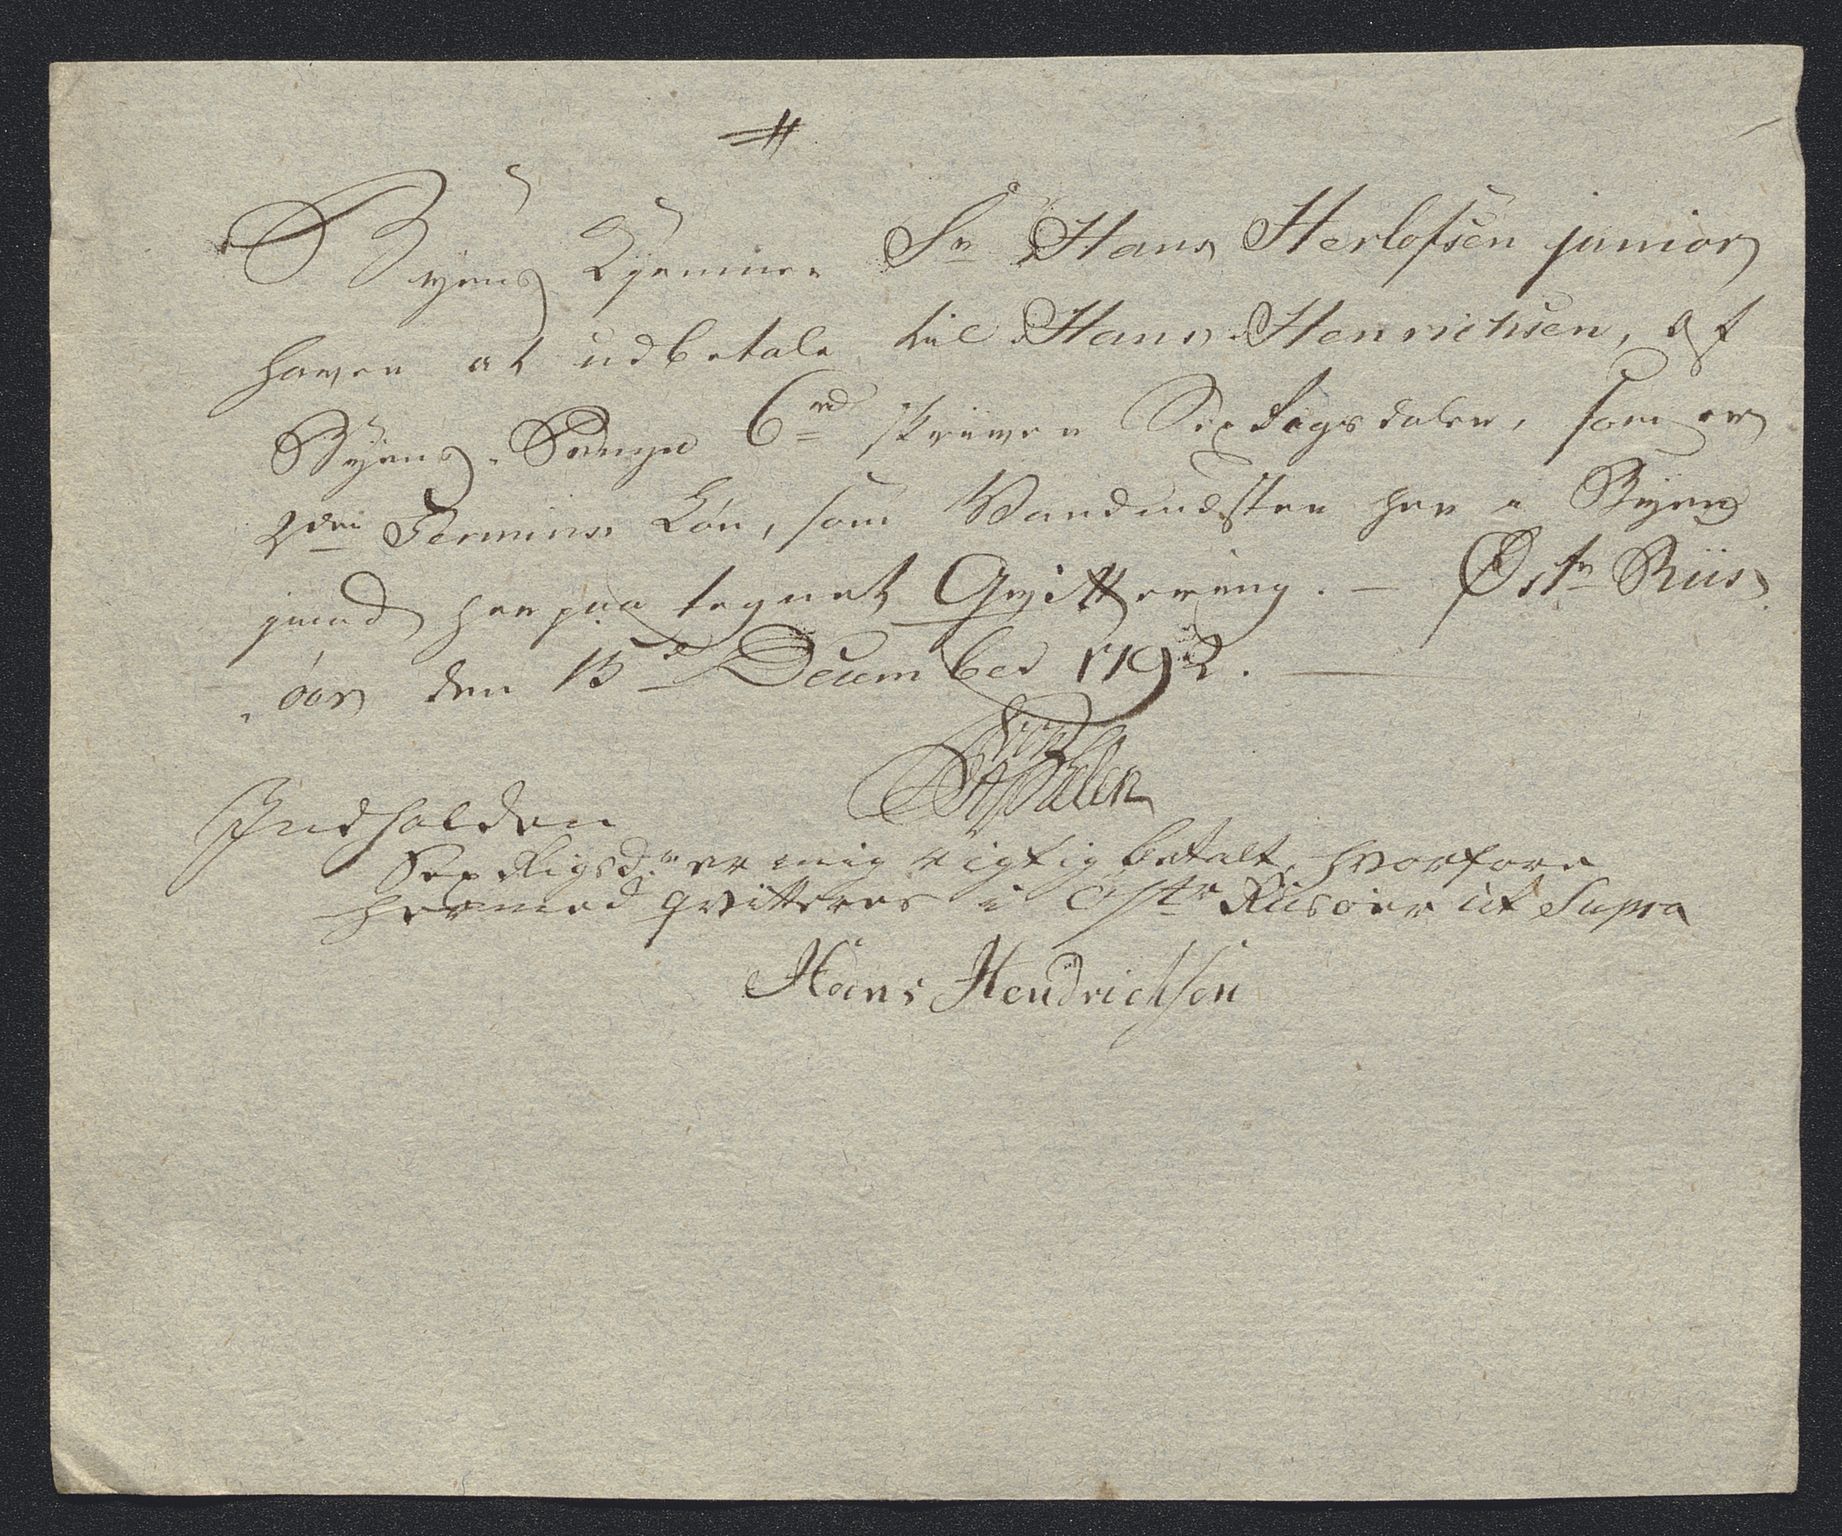 Byens Kjemner Sr Hans Herlofsen junior
haver at udbetale til Hans Henrichsen, af
Byens Penge 6 rd skriver Sex Rigsdaler, som er
2den Termins Løn, som Vandmester her i Byen
imod her paa tegnet Qvittering. — Østr Riis
öer den 15de December 1792. —
Indholden
Sex Rigsdr er mig rigtig betalt, hvorfore
hermed qvitteres i Østr Riisöer ut Supra
Hans Hendrichsen